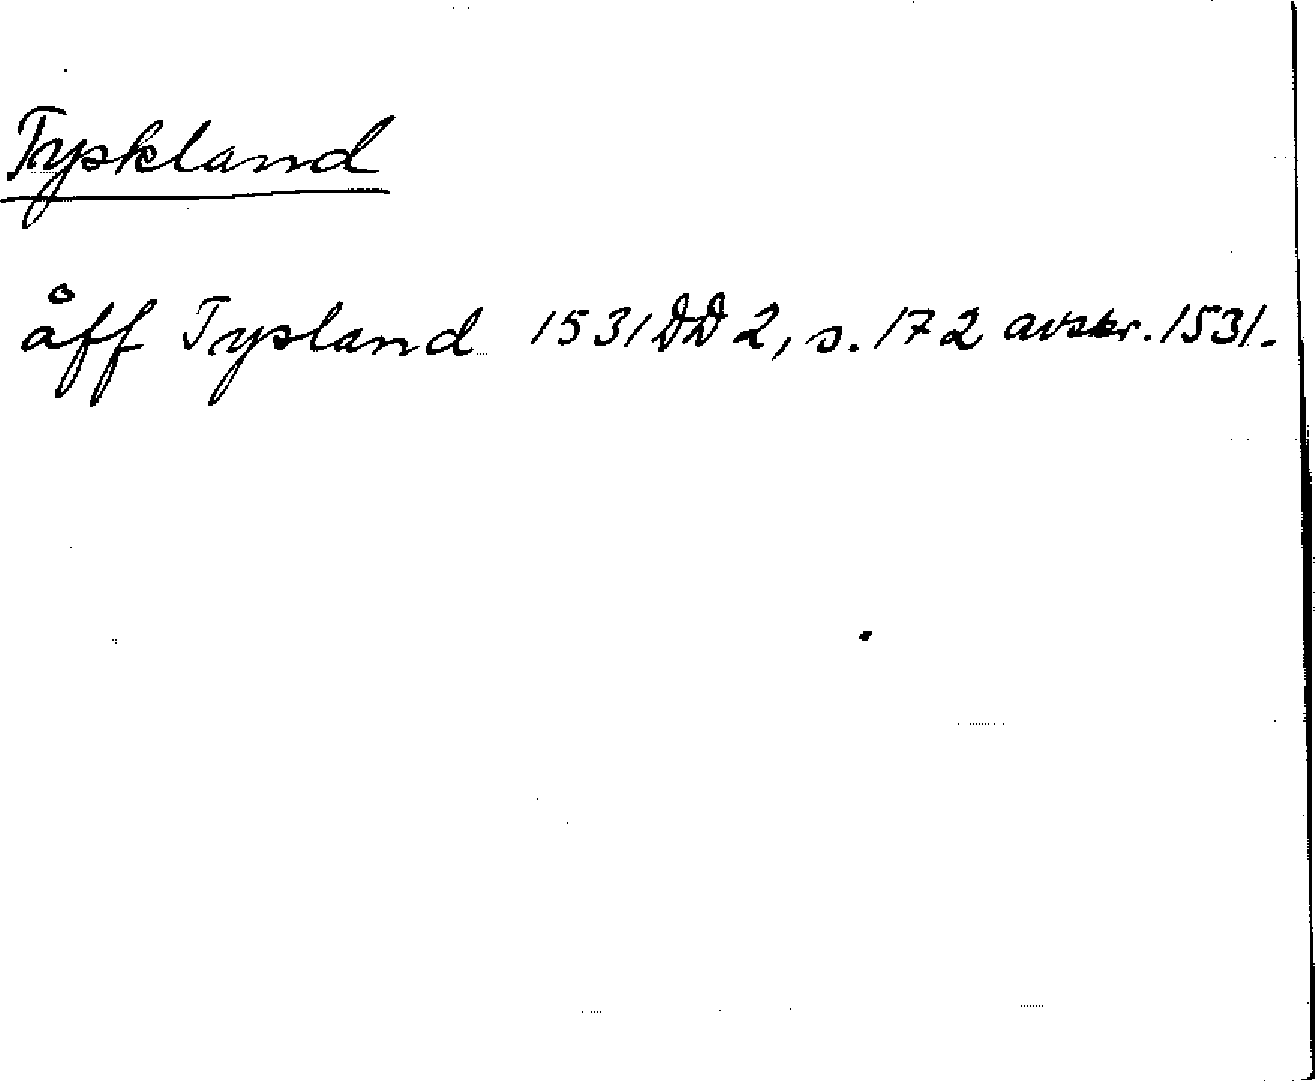 Tyskland
åff Tysland 1531 DD 2, s. 172 avskr. 1531.